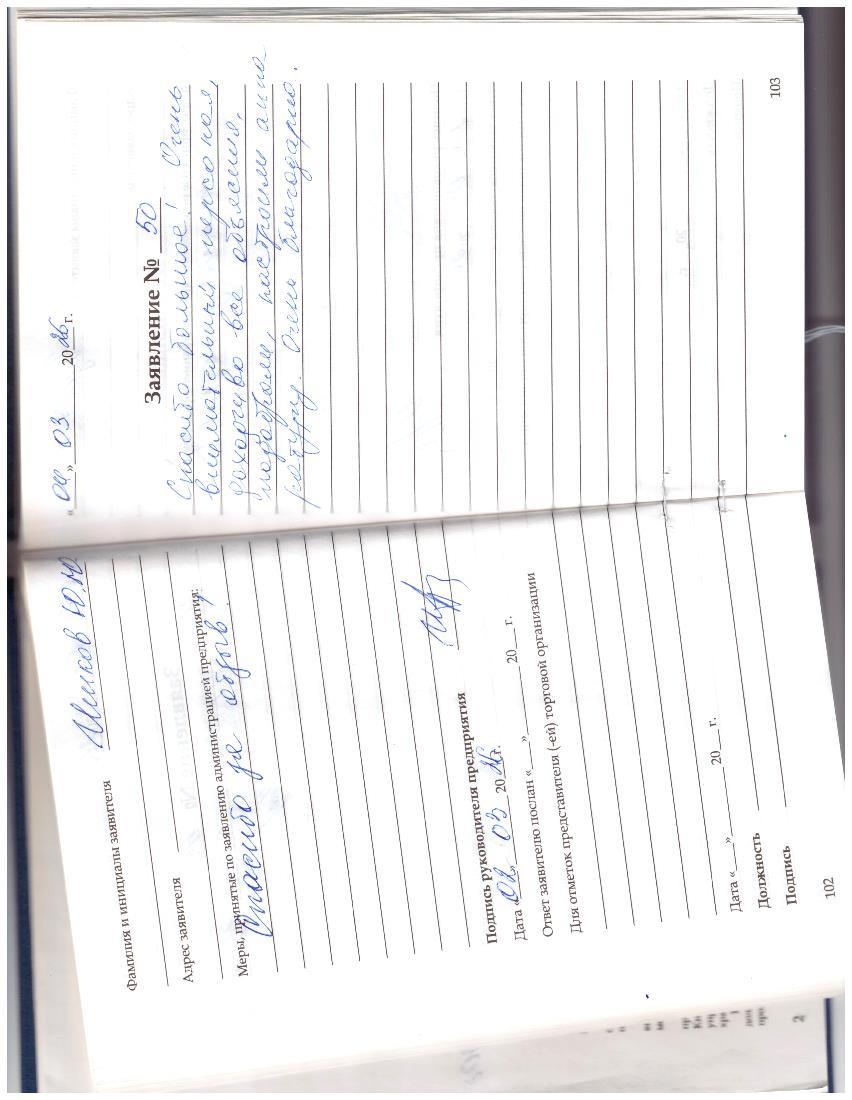 Фамилия и инициалы заявителя Ишков Ю.Ю
Адрес заявителя
Меры, принятые по заявлению администрацией предприятия:
Спасибо за отзыв!
Подпись руководителя предприятия
Дата «02» 03 2026г.
Ответ заявителю послан «___» ________ 20__ г.
Для отметок представителя (-ей) торговой организации
Дата «___» ________ 20__ г.
Должность
Подпись
102
«02» 03 2026г.
Заявление № 50
Спасибо большое! Очень
внимательный персонал,
доходчиво все объяснил,
подобрали, настроили аппа
ратуру. Очень благодарю.
103
2